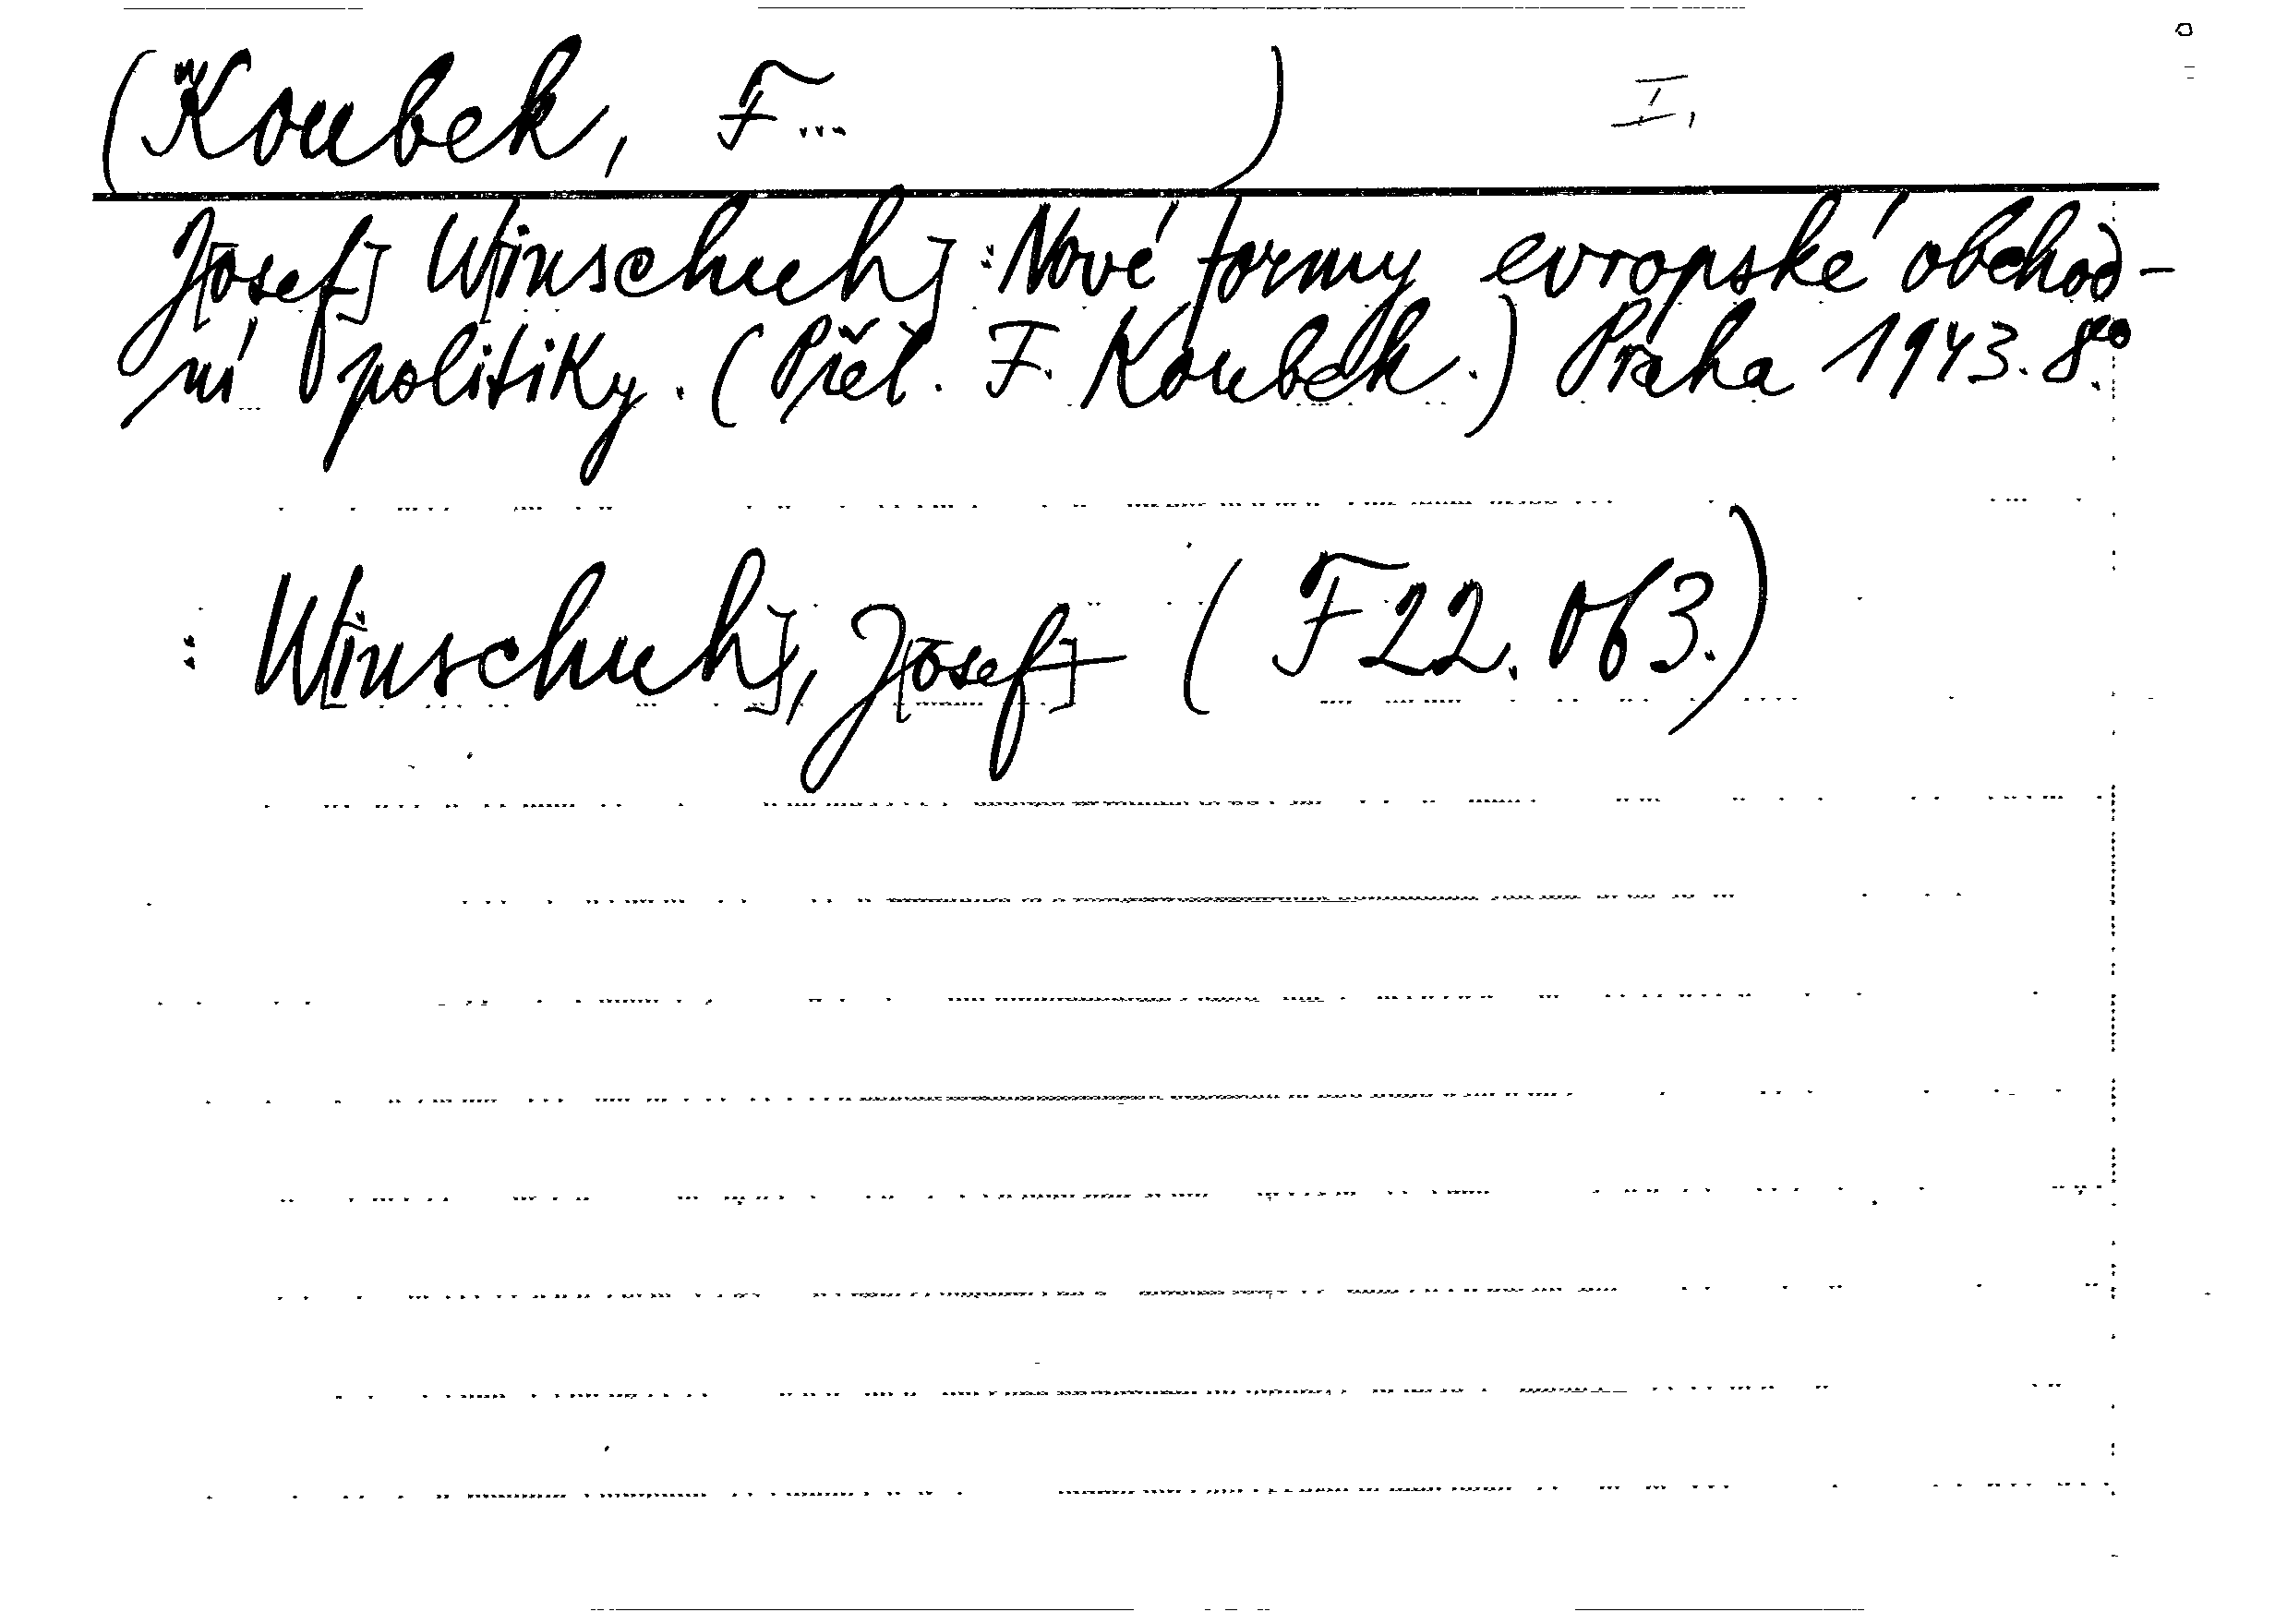 (Koubek, F... ) I.
J[osef] W[inschuh]: Nové formy evropské obchod-
ní politiky. (Přel. F. Koubek.) Praha 1943. 8°.
: W[inschuh], J[osef] (F 22.063.)